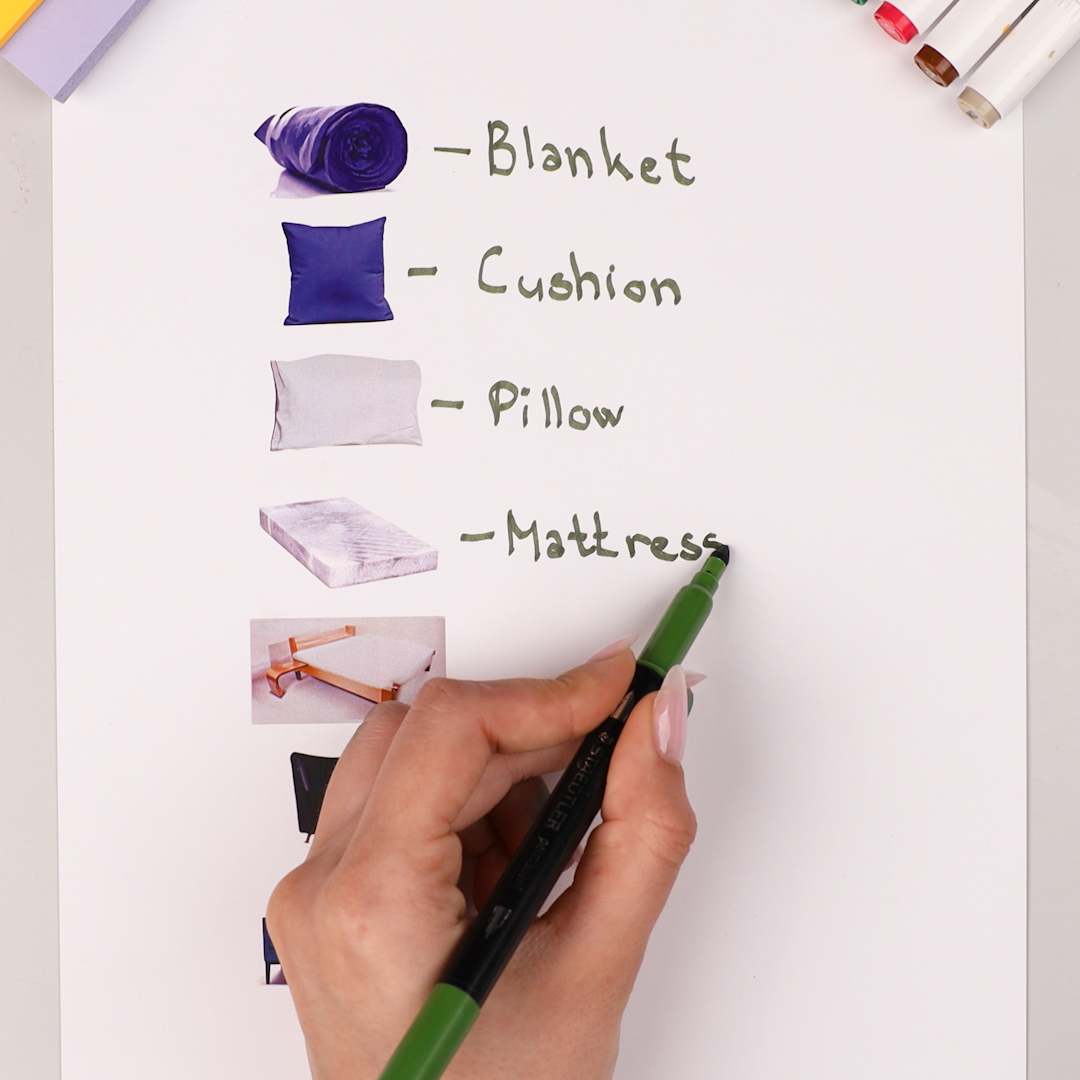 - Blanket
- Cushion
- Pillow
- Mattress
STAEDTLER